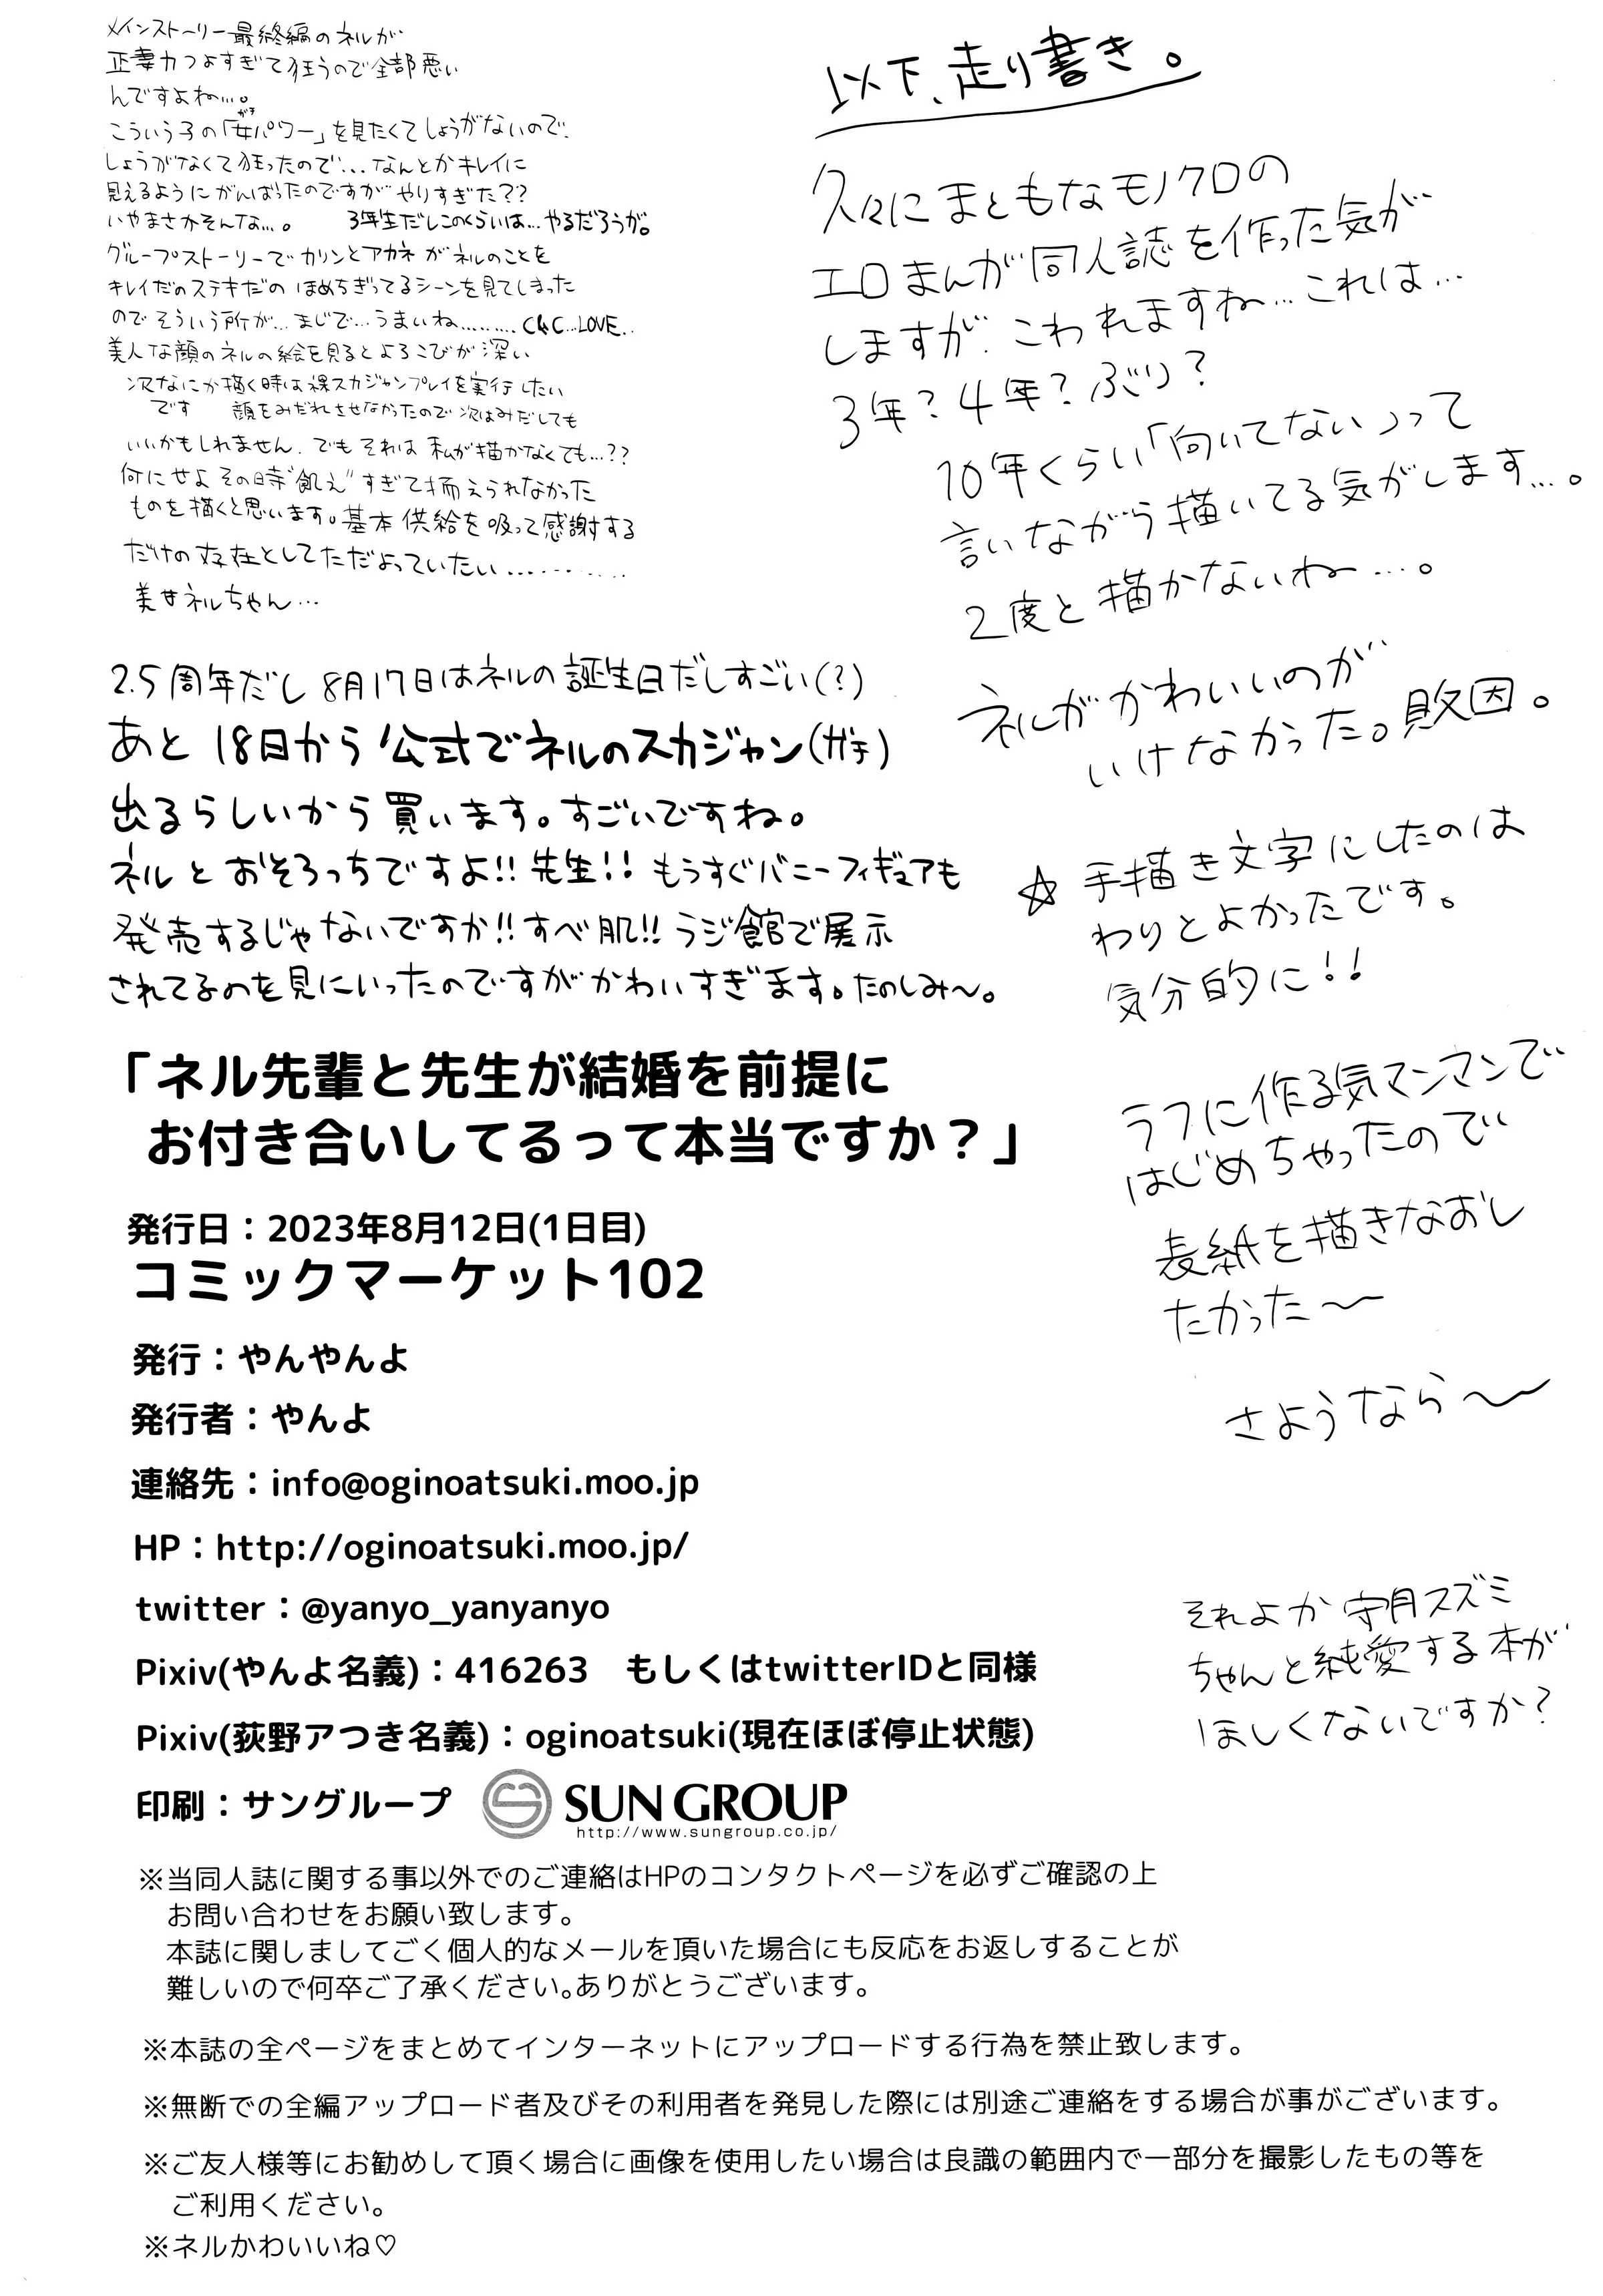 以下、走り書き。
久々にまともなモノクロの
エロまんが同人誌を作った気が
しますが、こわれますね…これは…
3年?4年?ぶり?
10年くらい「向いてない」って
言いながら描いてる気がします…。
2度と描かないね…。
ネルがかわいいのが
いけなかった。敗因。
☆手描き文字にしたのは
わりとよかったです。
気分的に!!
ラフに作る気マンマンで
はじめちゃったので
表紙を描きなおし
たかった〜
さようなら〜
それよか守月スズミ
ちゃんと純愛する本が
ほしくないですか?
メインストーリー最終編のネルが
正妻力つよすぎて狂うので全部悪い
んですよね…。
こういう子の「女パワー」を見たくてしょうがないので、
しょうがなくて狂ったので…なんとかキレイに
見えるようにがんばったのですがやりすぎた??
いやまさかそんな…。 3年生だしこのくらいは…やるだろうが。
グループストーリーでカリンとアカネがネルのことを
キレイだのステキだの ほめちぎってるシーンを見てしまった
のでそういう所が…まじで…うまいね……… C&C…LOVE..
美人な顔のネルの絵を見るとよろこびが深い
次なにか描く時は裸スカジャンプレイを実行したい
です 顔をみだれさせなかったので次はみだしても
いいかもしれません。でもそれは私が描かなくても…??
何にせよその時"飢え"すぎて揃えられなかった
ものを描くと思います。基本供給を吸って感謝する
だけの存在としてただよっていたい…………
美女ネルちゃん…
2.5周年だし8月17日はネルの誕生日だしすごい(?)
あと18日から公式でネルのスカジャン(ガチ)
出るらしいから買います。すごいですね。
ネルとおそろっちですよ!!先生!!もうすぐバニーフィギュアも
発売するじゃないですか!!すべ肌!!ラジ館で展示
されてるのを見にいったのですがかわいすぎます。たのしみ〜。
「ネル先輩と先生が結婚を前提に
お付き合いしてるって本当ですか？」
発行日：2023年8月12日(1日目)
コミックマーケット102
発行：やんやんよ
発行者：やんよ
連絡先：info@oginoatsuki.moo.jp
HP：http://oginoatsuki.moo.jp/
twitter：@yanyo_yanyanyo
Pixiv(やんよ名義)：416263　もしくはtwitterIDと同様
Pixiv(荻野アつき名義)：oginoatsuki(現在ほぼ停止状態)
印刷：サングループ SUN GROUP
http://www.sungroup.co.jp/
※当同人誌に関する事以外でのご連絡はHPのコンタクトページを必ずご確認の上
お問い合わせをお願い致します。
本誌に関しましてごく個人的なメールを頂いた場合にも反応をお返しすることが
難しいので何卒ご了承ください。ありがとうございます。
※本誌の全ページをまとめてインターネットにアップロードする行為を禁止致します。
※無断での全編アップロード者及びその利用者を発見した際には別途ご連絡をする場合が事がございます。
※ご友人様等にお勧めして頂く場合に画像を使用したい場合は良識の範囲内で一部分を撮影したもの等を
ご利用ください。
※ネルかわいいね♡